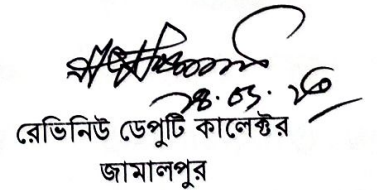 ২৪.০৩.২০
রেভিনিউ ডেপুটি কালেক্টর
জামালপুর